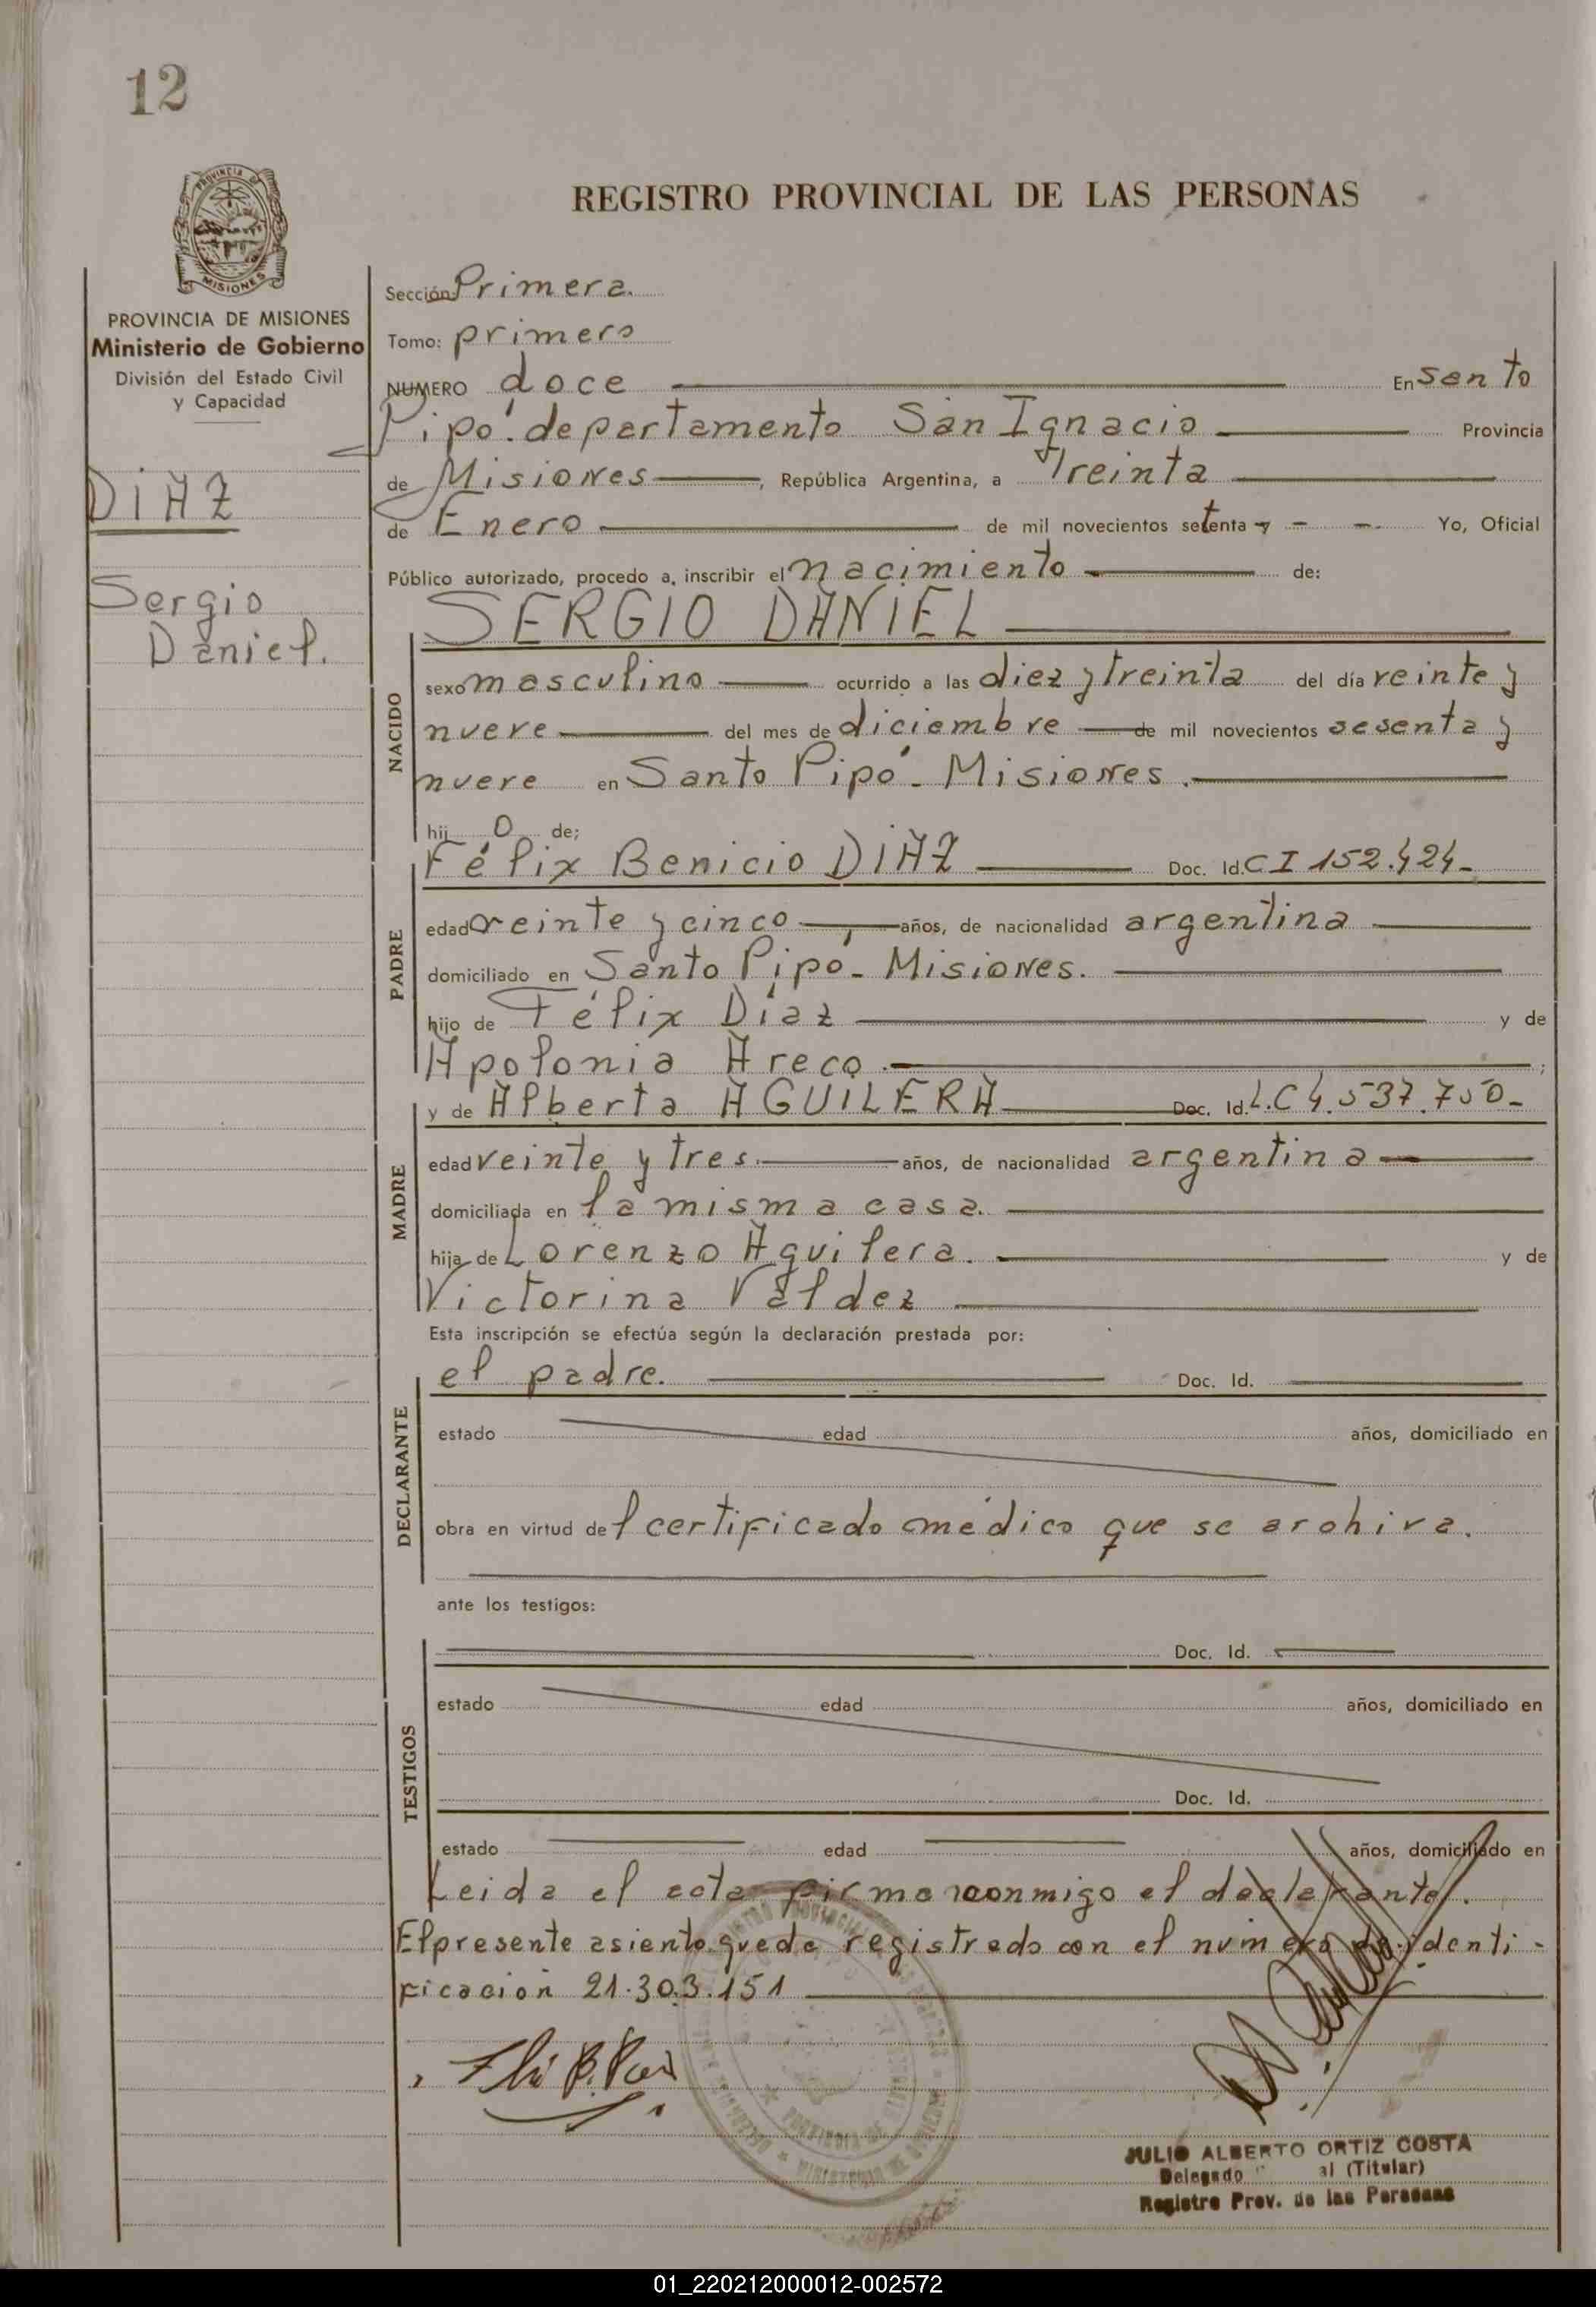 12
REGISTRO PROVINCIAL DE LAS PERSONAS
PROVINCIA DE MISIONES
PROVINCIA DE MISIONES
Ministerio de Gobierno
División del Estado Civil
y Capacidad
DIAZ
Sergio
Daniel.
Sección: Primera.
Tomo: primero
NUMERO doce En Santo
Pipó. departamento San Ignacio Provincia
de Misiones, República Argentina, a Treinta
de Enero de mil novecientos setenta y - - Yo, Oficial
Público autorizado, procedo a inscribir el nacimiento de:
SERGIO DANIEL
NACIDO
sexo masculino ocurrido a las diez y treinta del día veinte y
nueve del mes de diciembre de mil novecientos sesenta y
nueve en Santo Pipó - Misiones.
hij o de;
PADRE
Félix Benicio DIAZ Doc. Id. CI 152.424-
edad veinte y cinco años, de nacionalidad argentina
domiciliado en Santo Pipó - Misiones.
hijo de Félix Díaz y de
Apolonia Areco.;
MADRE
y de Alberta AGUILERA Doc. Id. L.C 4.537.750-
edad veinte y tres. años, de nacionalidad argentina
domiciliada en la misma casa.
hija de Lorenzo Aguilera. y de
Victorina Valdez
Esta inscripción se efectúa según la declaración prestada por:
DECLARANTE
el padre. Doc. Id.
estado edad años, domiciliado en
obra en virtud del certificado médico que se archiva.
ante los testigos:
TESTIGOS
Doc. Id.
estado edad años, domiciliado en
Doc. Id.
estado edad años, domiciliado en
Leida el acta firma conmigo el declarante.
El presente asiento queda registrado con el número de identi-
ficación 21.303.151
JULIO ALBERTO ORTIZ COSTA
Delegado al (Titular)
Registro Prov. de las Personas
01_220212000012-002572